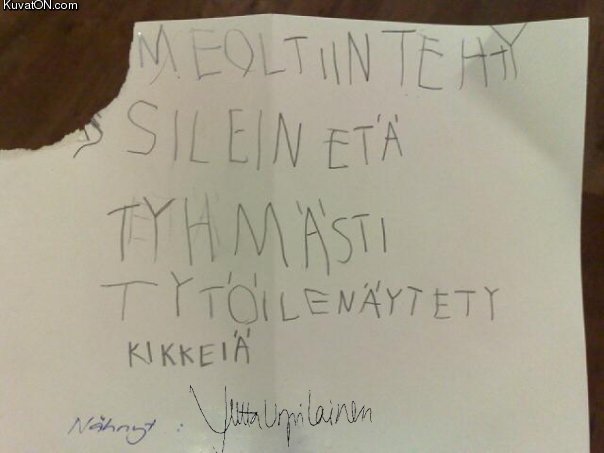 KuvatON.com
MEOLTIIN TEHTY
SILEIN ETÄ
TYHMÄSTI
TYTÖILENÄYTETY
KIKKEIÄ
Nähnyt :